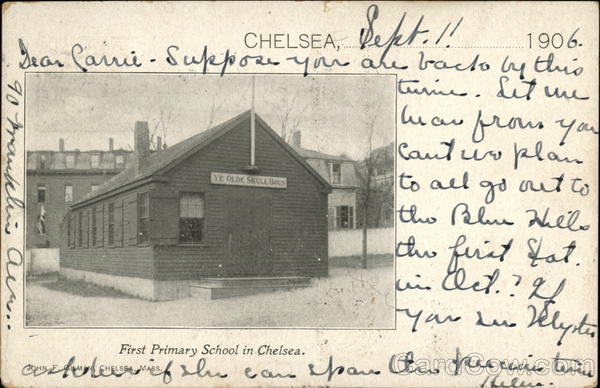 CHELSEA, Sept. 11 1906.
Dear Carrie - Suppose you are back by this
time. Let me
hear from you
Can't we plan
to all go out to
the Blue Hills
the first Sat.
in Oct.? If
you
ask her if she can spare the time
90 Franklin Ave.
YE OLDE SKULE HOUS
First Primary School in Chelsea.
JOHN F. GILMAN, CHELSEA, MASS.
CardCow.com